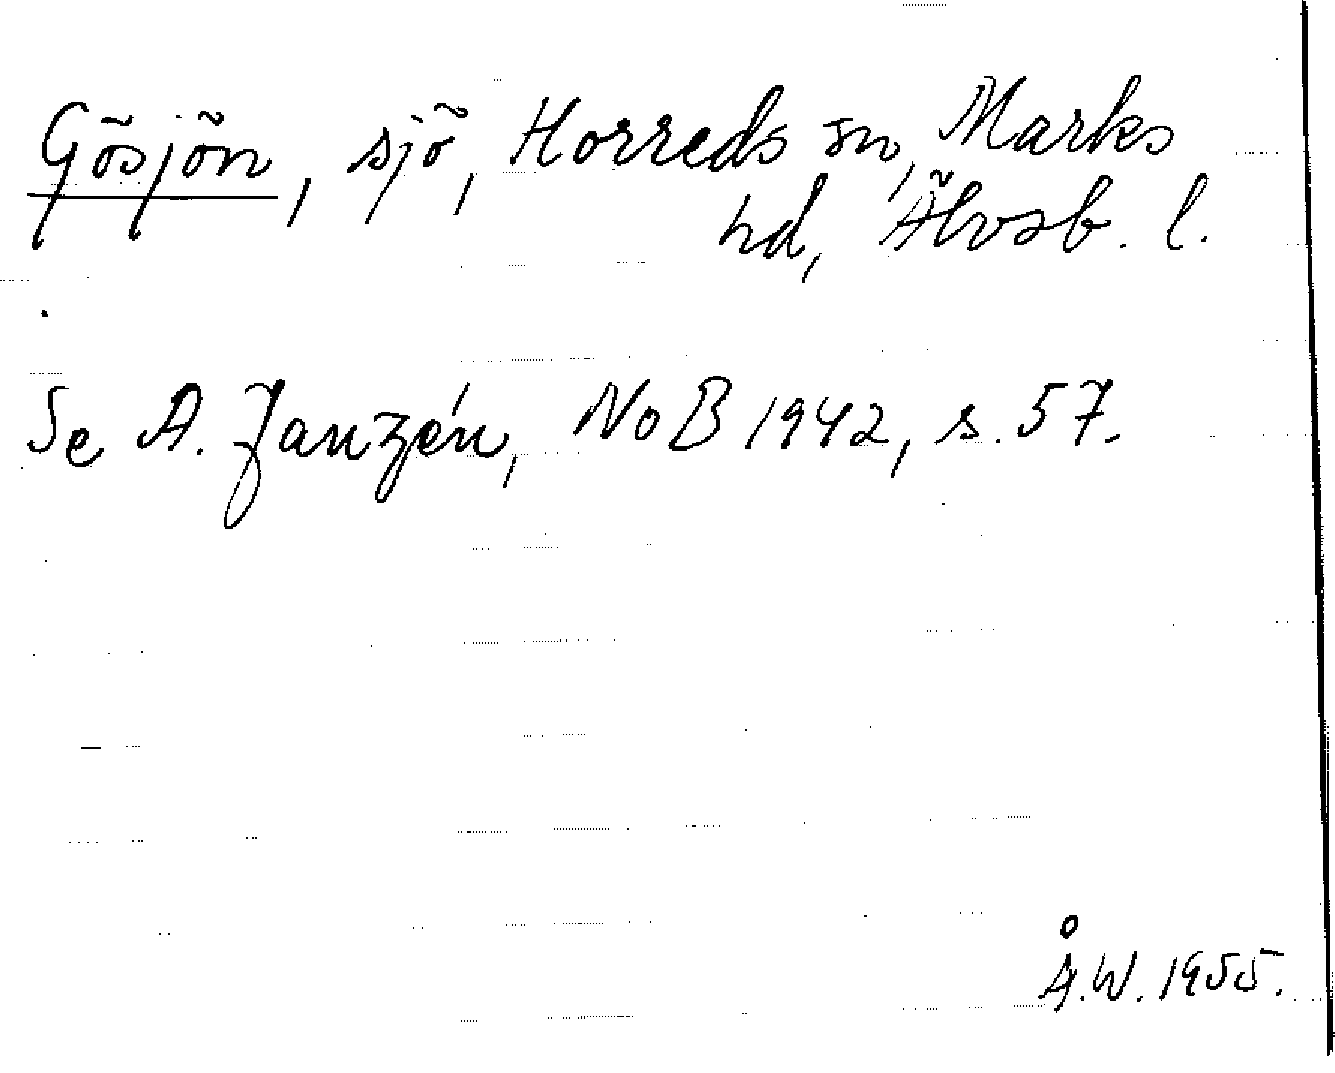 Gösjön, sjö, Horreds sn, Marks
hd, Älvsb. l.
Se A. Janzén, NoB 1942, s. 57.
Å.W. 1955.